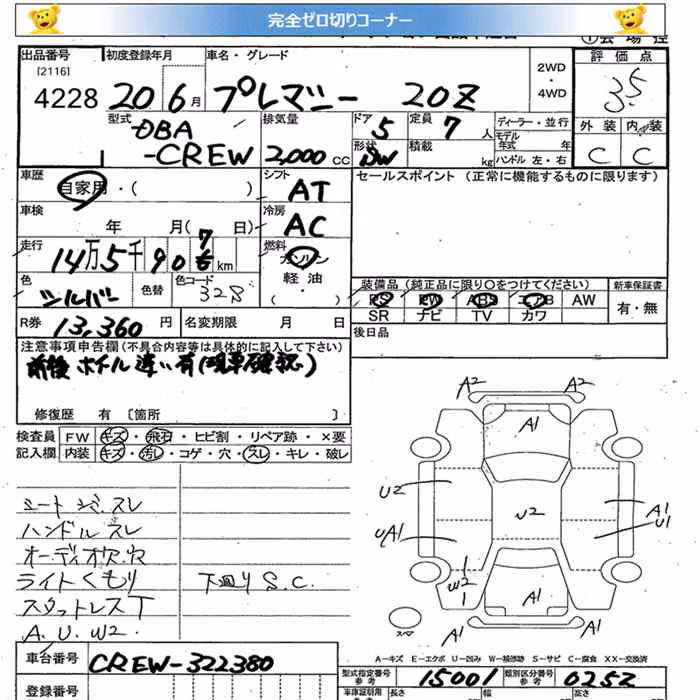 完全ゼロ切りコーナー
出品番号
[2116]
4228
初度登録年月
20 6月
車名・グレード
プレマシー 20Z
2WD
・
4WD
評価点
3.5
型式
DBA
-CREW
排気量
2,000 CC
ドア 5
定員 7 人
ディーラー・並行
モデル
年式 年
形状 SW
積載 kg
ハンドル 左・右
外装 内装
C C
車歴
自家用・( )
シフト
AT
セールスポイント (正常に機能するものに限ります)
車検
年 月( )
冷房
AC
走行
14万5千90 7 km
燃料
ガソリン
軽油
( )
色
シルバー
色替
色コード
32S
装備品(純正品に限り〇をつけてください) 新車保証書
PS PW ABS エアB AW 有・無
SR ナビ TV カワ
R券 13,360 円 名変期限 月 日
後日品
注意事項申告欄(不具合内容等は具体的に記入して下さい)
前後 ホイル違い有(現車確認)
修復歴 有 〔箇所 〕
検査員 FW キズ・飛石・ヒビ割・リペア跡・×要
記入欄 内装 キズ・汚レ・コゲ・穴・スレ・キレ・破レ
シートシミ.スレ
ハンドルスレ
オーディオ欠.穴
ライトくもり 下廻りS.C.
スタットレスT
A.U.W2.
A2 A2
A1
U2
W2
A1
U1
UA1
W2
A1
A1 A1
スペア
A―キズ E―エクボ U―凹み W―補修跡 S―サビ C―腐食 XX―交換済
車台番号 CREW-322380
登録番号
型式指定番号
参考
15001
類別区分番号
参考
0252
車庫証明用
長さ 幅 高さ